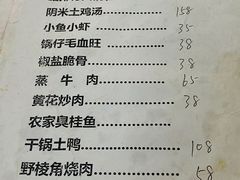 阴米土鸡汤 158
小鱼小虾 35
锅仔毛血旺 38
椒盐脆骨 38
蒸牛肉 65
黄花炒肉 38
农家臭桂鱼
干锅土鸭 108
野菱角烧肉 58